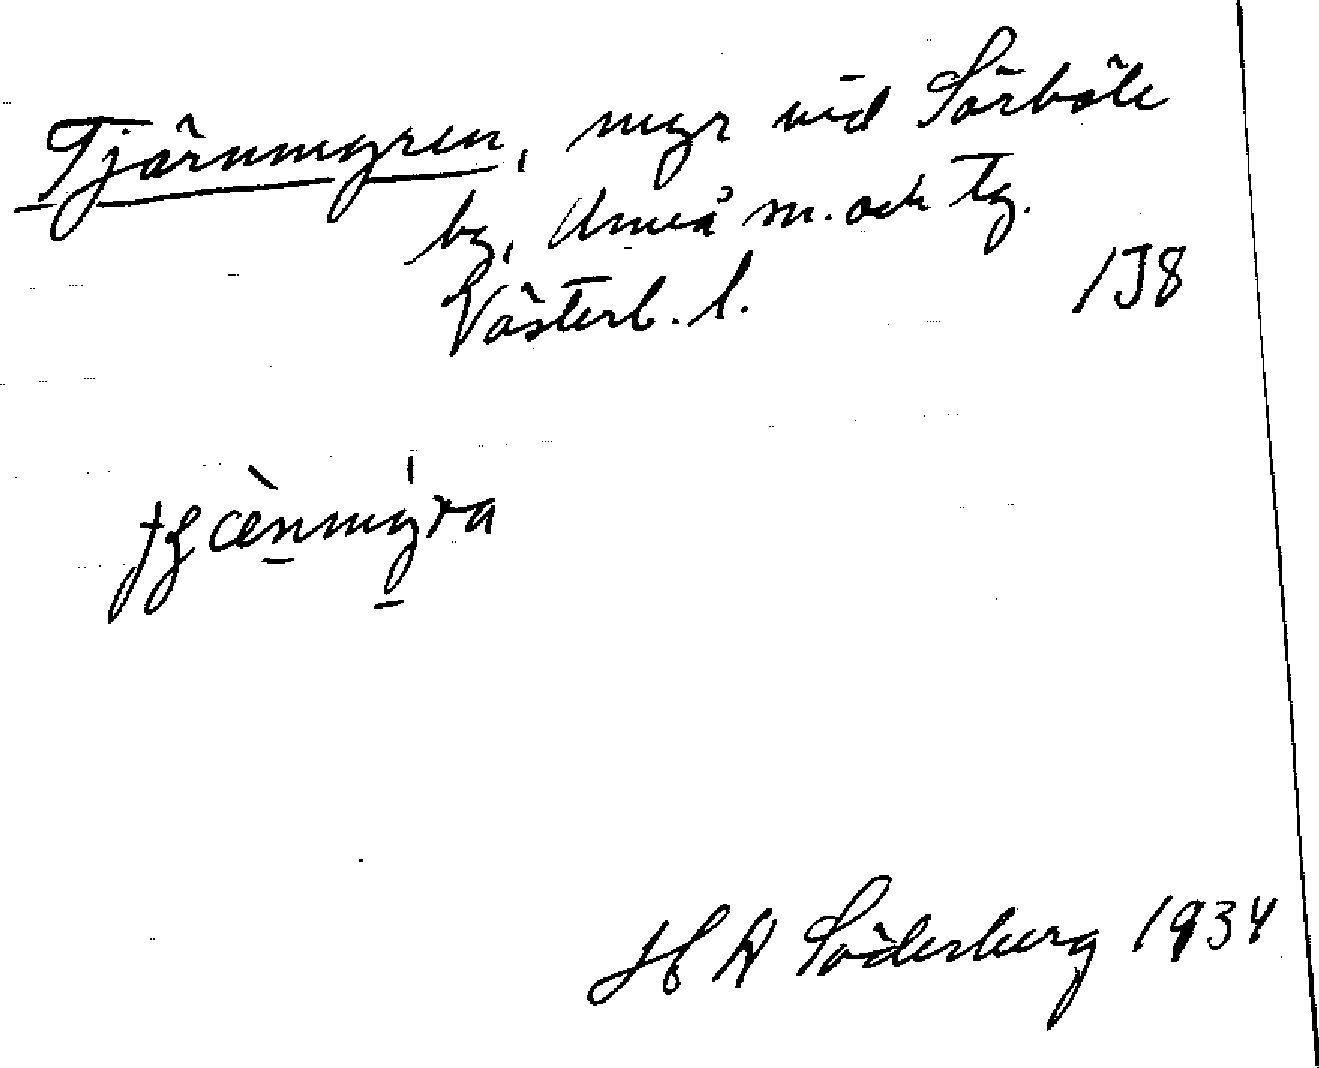 Tjärnmyren, myr vid Sörböle
by, Umeå sn. och tg.
Västerb. l. 138
H A Söderberg 1934